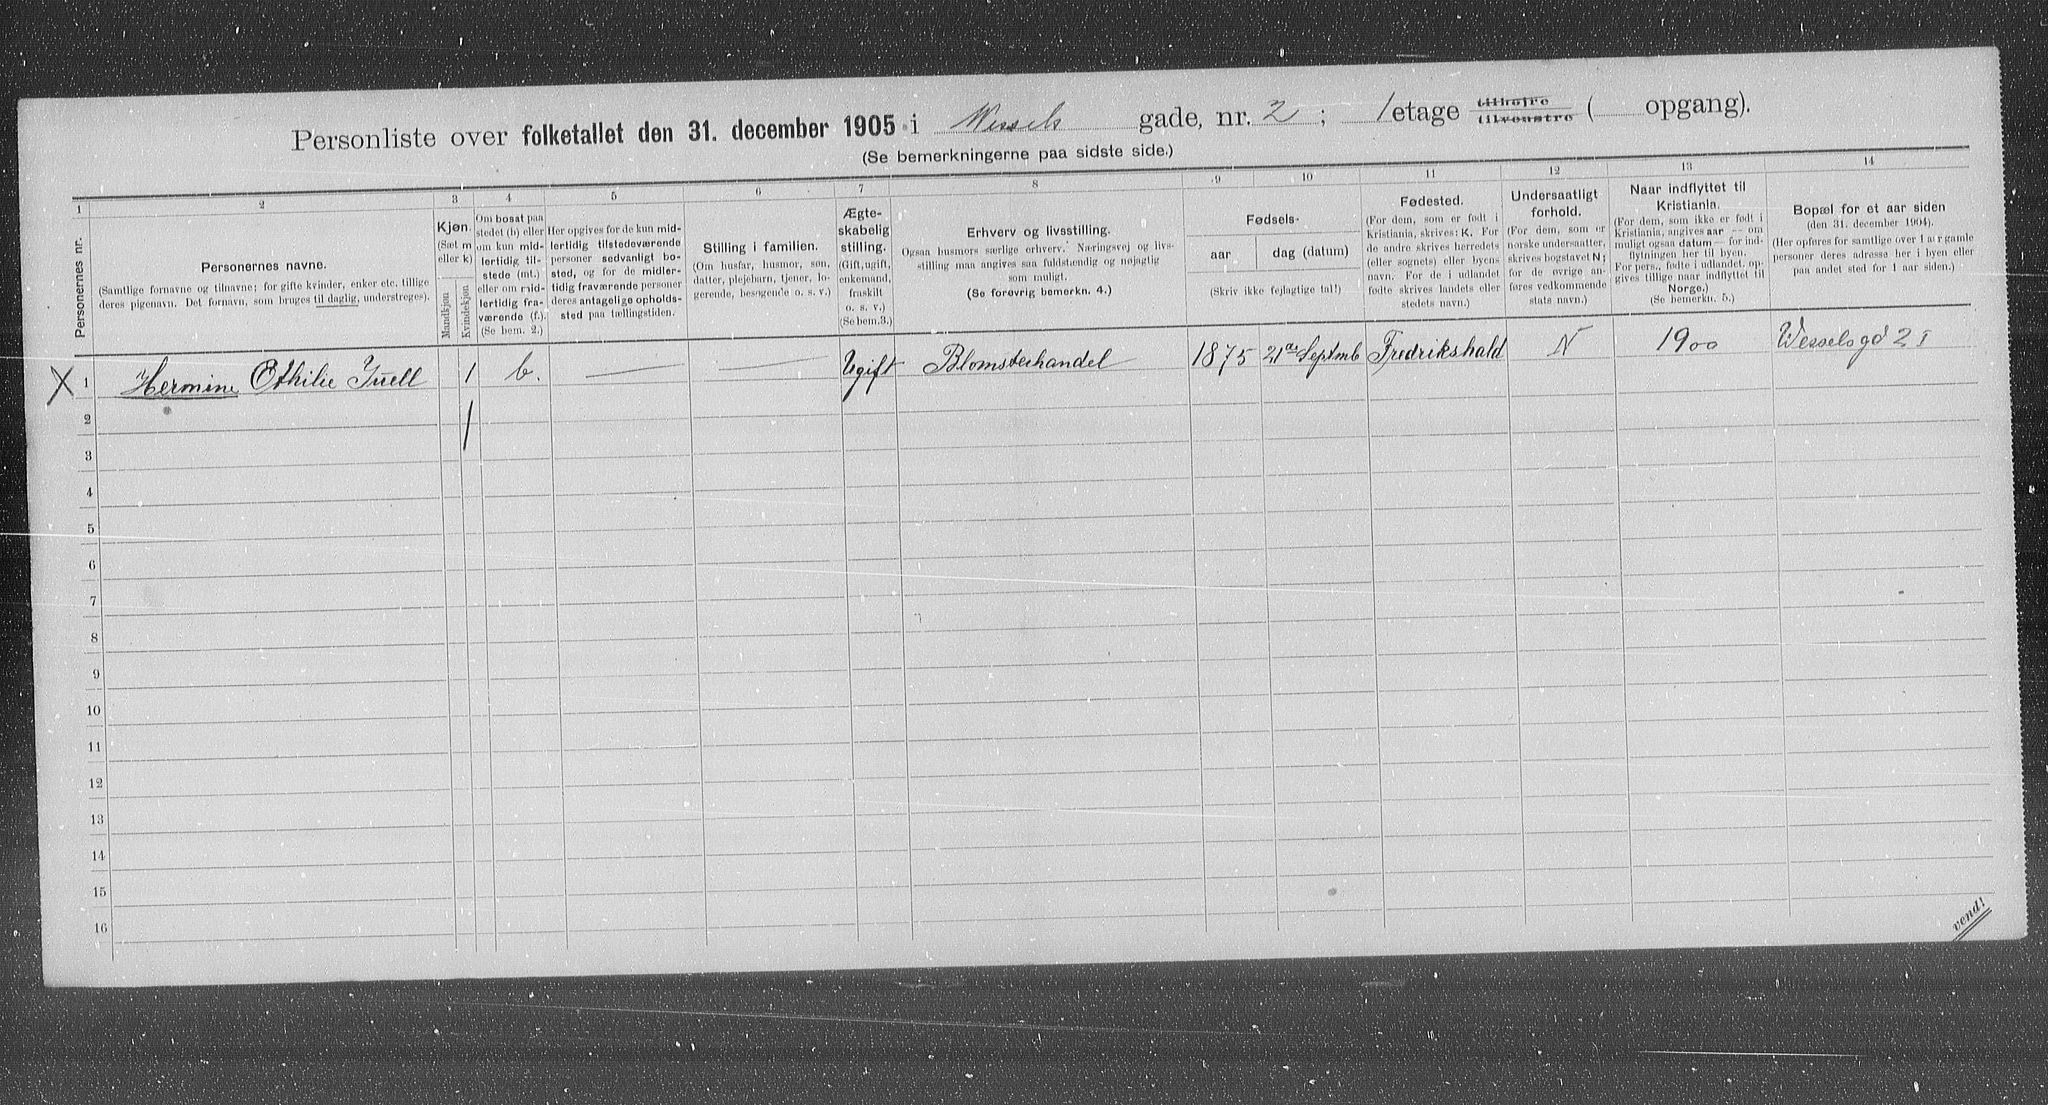 Personliste over folketallet den 31. december 1905 i Wessels gade, nr. 2 ; 1 etage tilhøjre tilvenstre ( opgang).
(Se bemerkningerne paa sidste side.)
1 2 3 4 5 6 7 8 9 10 11 12 13 14
Personernes nr.
Personernes navne.
(Samtlige fornavne og tilnavne; for gifte kvinder, enker etc. tillige
deres pigenavn. Det fornavn, som bruges til daglig, understreges).
Kjøn.
(Sæt m
eller k)
Mandkjøn
Kvindekjøn
Om bosat paa
stedet (b) eller
om kun mid-
lertidig til-
stede (mt.)
eller om mid-
lertidig fra-
værende (f.).
(Se bem. 2.)
Her opgives for de kun mid-
lertidig tilstedeværende
personer sedvanligt bo-
sted, og for de midler-
tidig fraværende personer
deres antagelige opholds-
sted paa tællingstiden.
Stilling i familien.
(Om husfar, husmor, søn,
datter, plejebarn, tjener, lo-
gerende, besøgende o. s. v.)
Ægte-
skabelig
stilling.
(Gift, ugift,
enkemand,
fraskilt
o. s. v.)
(Se bem. 3.)
Erhverv og livsstilling.
Ogsaa husmors særlige erhverv. Næringsvej og livs-
stilling maa angives saa fuldstændig og nøjagtig
som muligt.
(Se forøvrig bemerkn. 4.)
Fødsels-
aar
dag (datum)
(Skriv ikke fejlagtige tal!)
Fødested.
(For dem, som er født i
Kristiania, skrives: K. For
de andre skrives herredets
(eller sognets) eller byens
navn. For de i udlandet
fødte skrives landets eller
stedets navn.)
Undersaatligt
forhold.
(For dem, som er
norske undersaatter,
skrives bogstavet N;
for de øvrige an-
føres vedkommende
stats navn.)
Naar indflyttet til
Kristiania.
(For dem, som ikke er født i
Kristiania, angives aar — om
muligt ogsaa datum — for ind-
flytningen her til byen.
For pers., fødte i udlandet, op-
gives tillige naar indflyttet til
Norge.)
(Se bemerkn. 5.)
Bopæl for et aar siden
(den 31. december 1904).
(Her opføres for samtlige over 1 aar gamle
personer deres adresse her i byen eller
paa andet sted for 1 aar siden.)
X 1 Hermine Othilie Juell 1 b. — — Ugift Blomsterhandel 1875 21de Septmb Fredrikshald N 1900 Wesselsgd 2 I
2 1
3
4
5
6
7
8
9
10
11
12
13
14
15
16
vend!